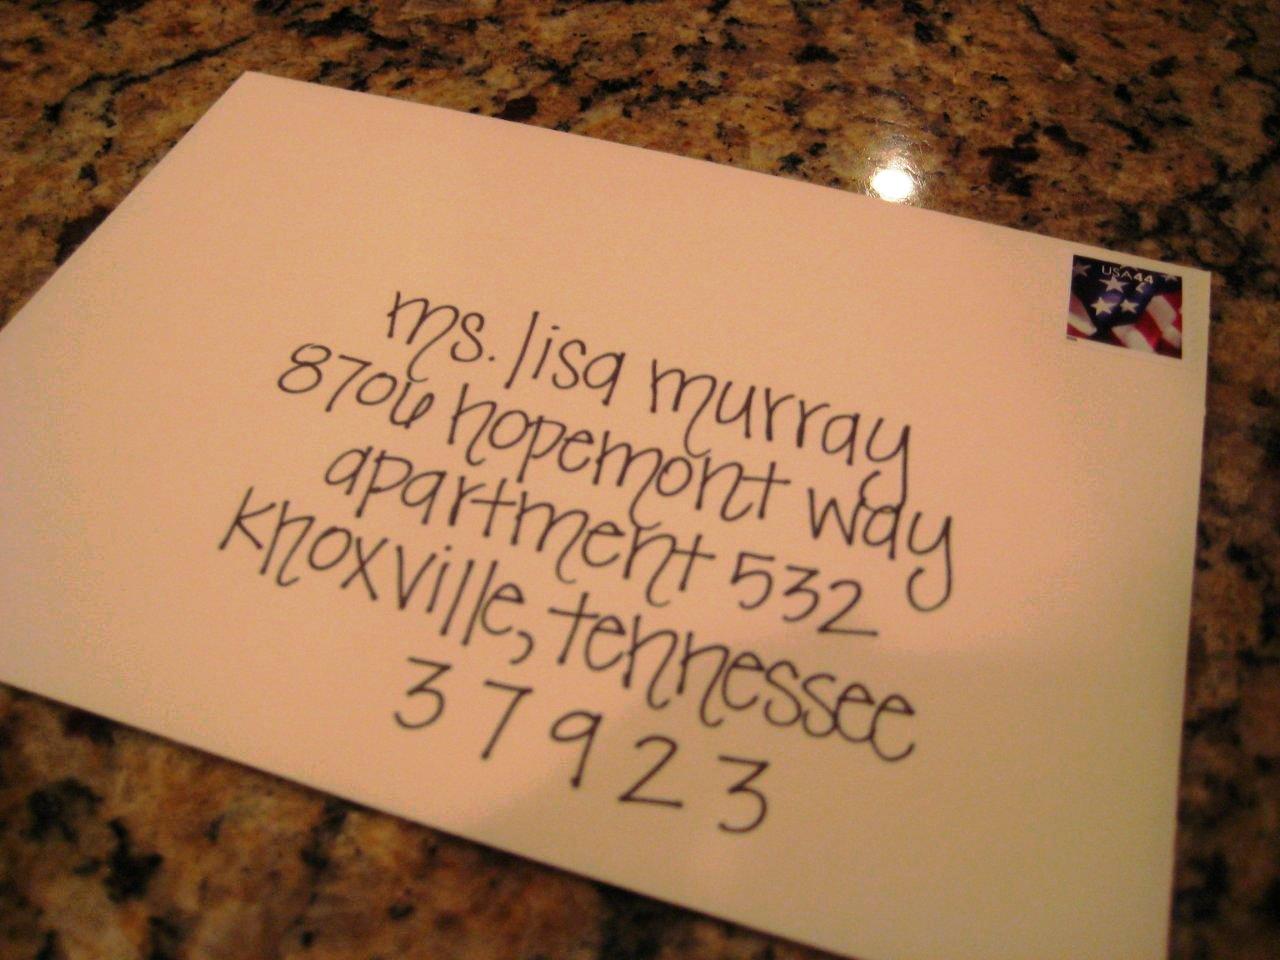 USA 44
ms. lisa murray
8706 hopemont way
apartment 532
knoxville, tennessee
37923